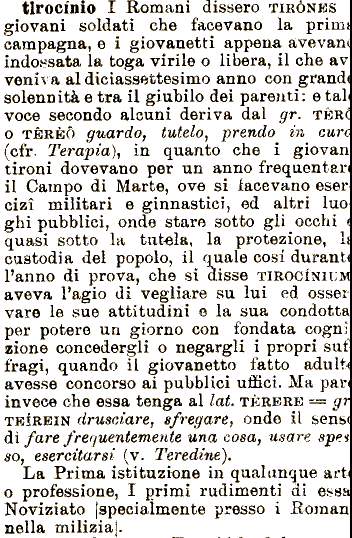 tirocínio I Romani dissero TIRÒNES
giovani soldati che facevano la prima
campagna, e i giovanetti appena avevan
indossata la toga virile o libera, il che av
veniva al diciassettesimo anno con grande
solennità e tra il giubilo dei parenti: e tale
voce secondo alcuni deriva dal gr. TÈRÒ
o TÈRÈÔ guardo, tutelo, prendo in cura
(cfr. Terapia), in quanto che i giovan
tironi dovevano per un anno frequentare
il Campo di Marte, ove si facevano eser
cizî militari e ginnastici, ed altri luo
ghi pubblici, onde stare sotto gli occhi e
quasi sotto la tutela, la protezione, la
custodia del popolo, il quale così durante
l'anno di prova, che si disse TIROCÍNIUM
aveva l'agio di vegliare su lui ed osser
vare le sue attitudini e la sua condotta
per potere un giorno con fondata cogni
zione concedergli o negargli i propri suf
fragi, quando il giovanetto fatto adulto
avesse concorso ai pubblici uffici. Ma pare
invece che essa tenga al lat. TÈRERE = gr
TEÍREIN drusciare, sfregare, onde il senso
di fare frequentemente una cosa, usare spes
so, esercitarsi (v. Teredine).
La Prima istituzione in qualunque arte
o professione, I primi rudimenti di essa
Noviziato [specialmente presso i Roman
nella milizia].